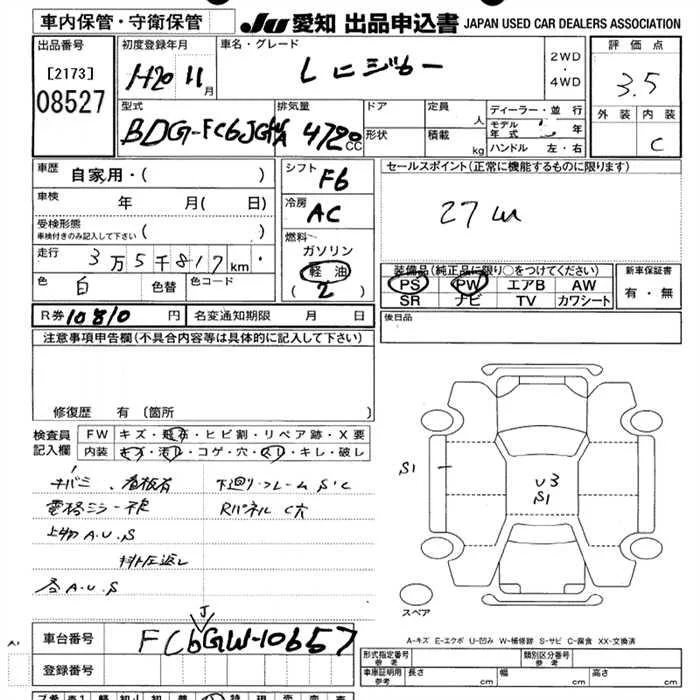 車内保管・守衛保管 JU 愛知 出品申込書 JAPAN USED CAR DEALERS ASSOCIATION
出品番号 初度登録年月 車名・グレード 2WD・4WD 評価点
[2173] H20 11月 レンジャー 3.5
08527 型式 排気量 ドア 定員 人 ディーラー・並行 外装 内装
BDG-FC6JGWA 4720cc 形状 積載 kg モデル年式 年 C
ハンドル 左・右
車歴 自家用・( ) シフト F6 セールスポイント(正常に機能するものに限ります)
車検 年 月(日) 冷房 AC
受検形態
車検付きのみ記入して下さい( ) 燃料
走行 3万5千817km ガソリン
軽油
色 白 色替 色コード ( 2 )
装備品(純正品に限り○をつけてください) 新車保証書
PS PW エアB AW 有・無
SR ナビ TV カワシート
R券 10810円 名変通知期限 月 日 後日品
注意事項申告欄(不具合内容等は具体的に記入して下さい)
修復歴 有〔箇所
検査員 FW キズ・飛石・ヒビ割・リペア跡・X要
記入欄 内装 キズ・汚れ・コゲ・穴・スレ・キレ・破レ
サバミ 看板有 下廻り・フレーム S・C
電格ミラー不良 Rパネル C穴
上物 A.U.S
各 A.U.S
S1
U3
S1
スペア
J
車台番号 FC6GW-10657
登録番号
A-キズ E-エクボ U-凹み W-補修跡 S-サビ C-腐食 XX-交換済
形式指定番号 参考 類別区分番号 参考
車庫証明用 参考 長さ 幅 高さ